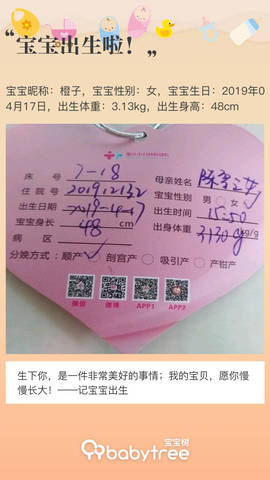 “宝宝出生啦！”
宝宝昵称：橙子，宝宝性别：女，宝宝生日：2019年0
4月17日，出生体重：3.13kg，出生身高：48cm
床 号 7-18
母亲姓名
住院号 201912132
宝宝性别 男 女
出生日期 2019-4-17
出生时间 15:50
宝宝身长 48 cm
出身体重 3130g kg/g
病 区
分娩方式：顺产 ✓ 剖宫产 吸引产 产钳产
微信 微博 APP1 APP2
生下你，是一件非常美好的事情；我的宝贝，愿你慢
慢长大！——记宝宝出生
宝宝树
babytree